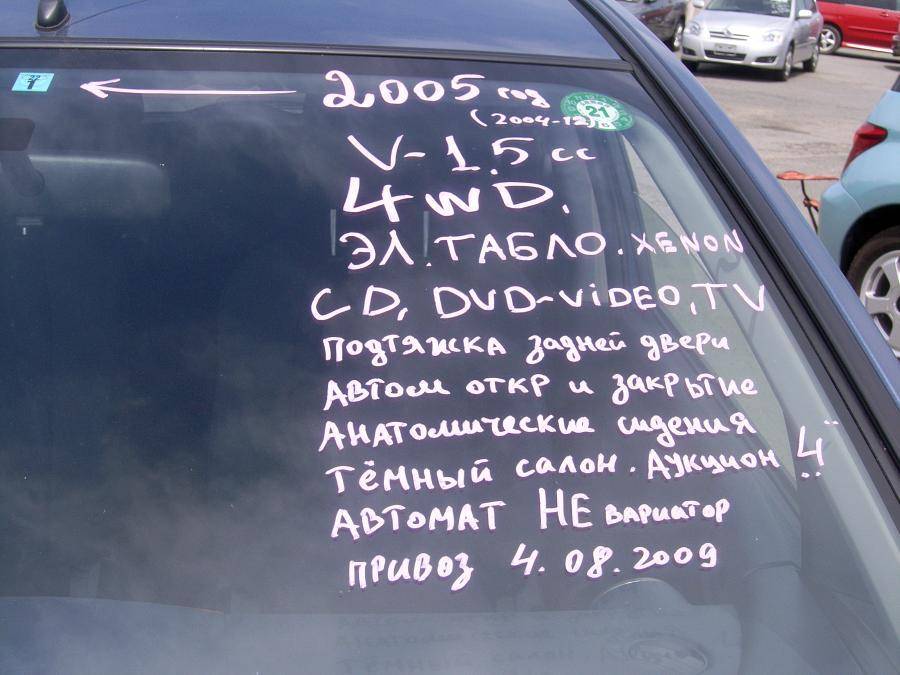 2005 год
(2004-12)
21
V-1.5 cc
4WD.
ЭЛ. ТАБЛО. XENON
CD, DVD-ViDEO, TV
подтяжка задней двери
Автом откр и закрытие
Анатомические сидения
тёмный салон. Аукцион "4"
АВТОМАТ НЕ вариатор
привоз 4.08.2009